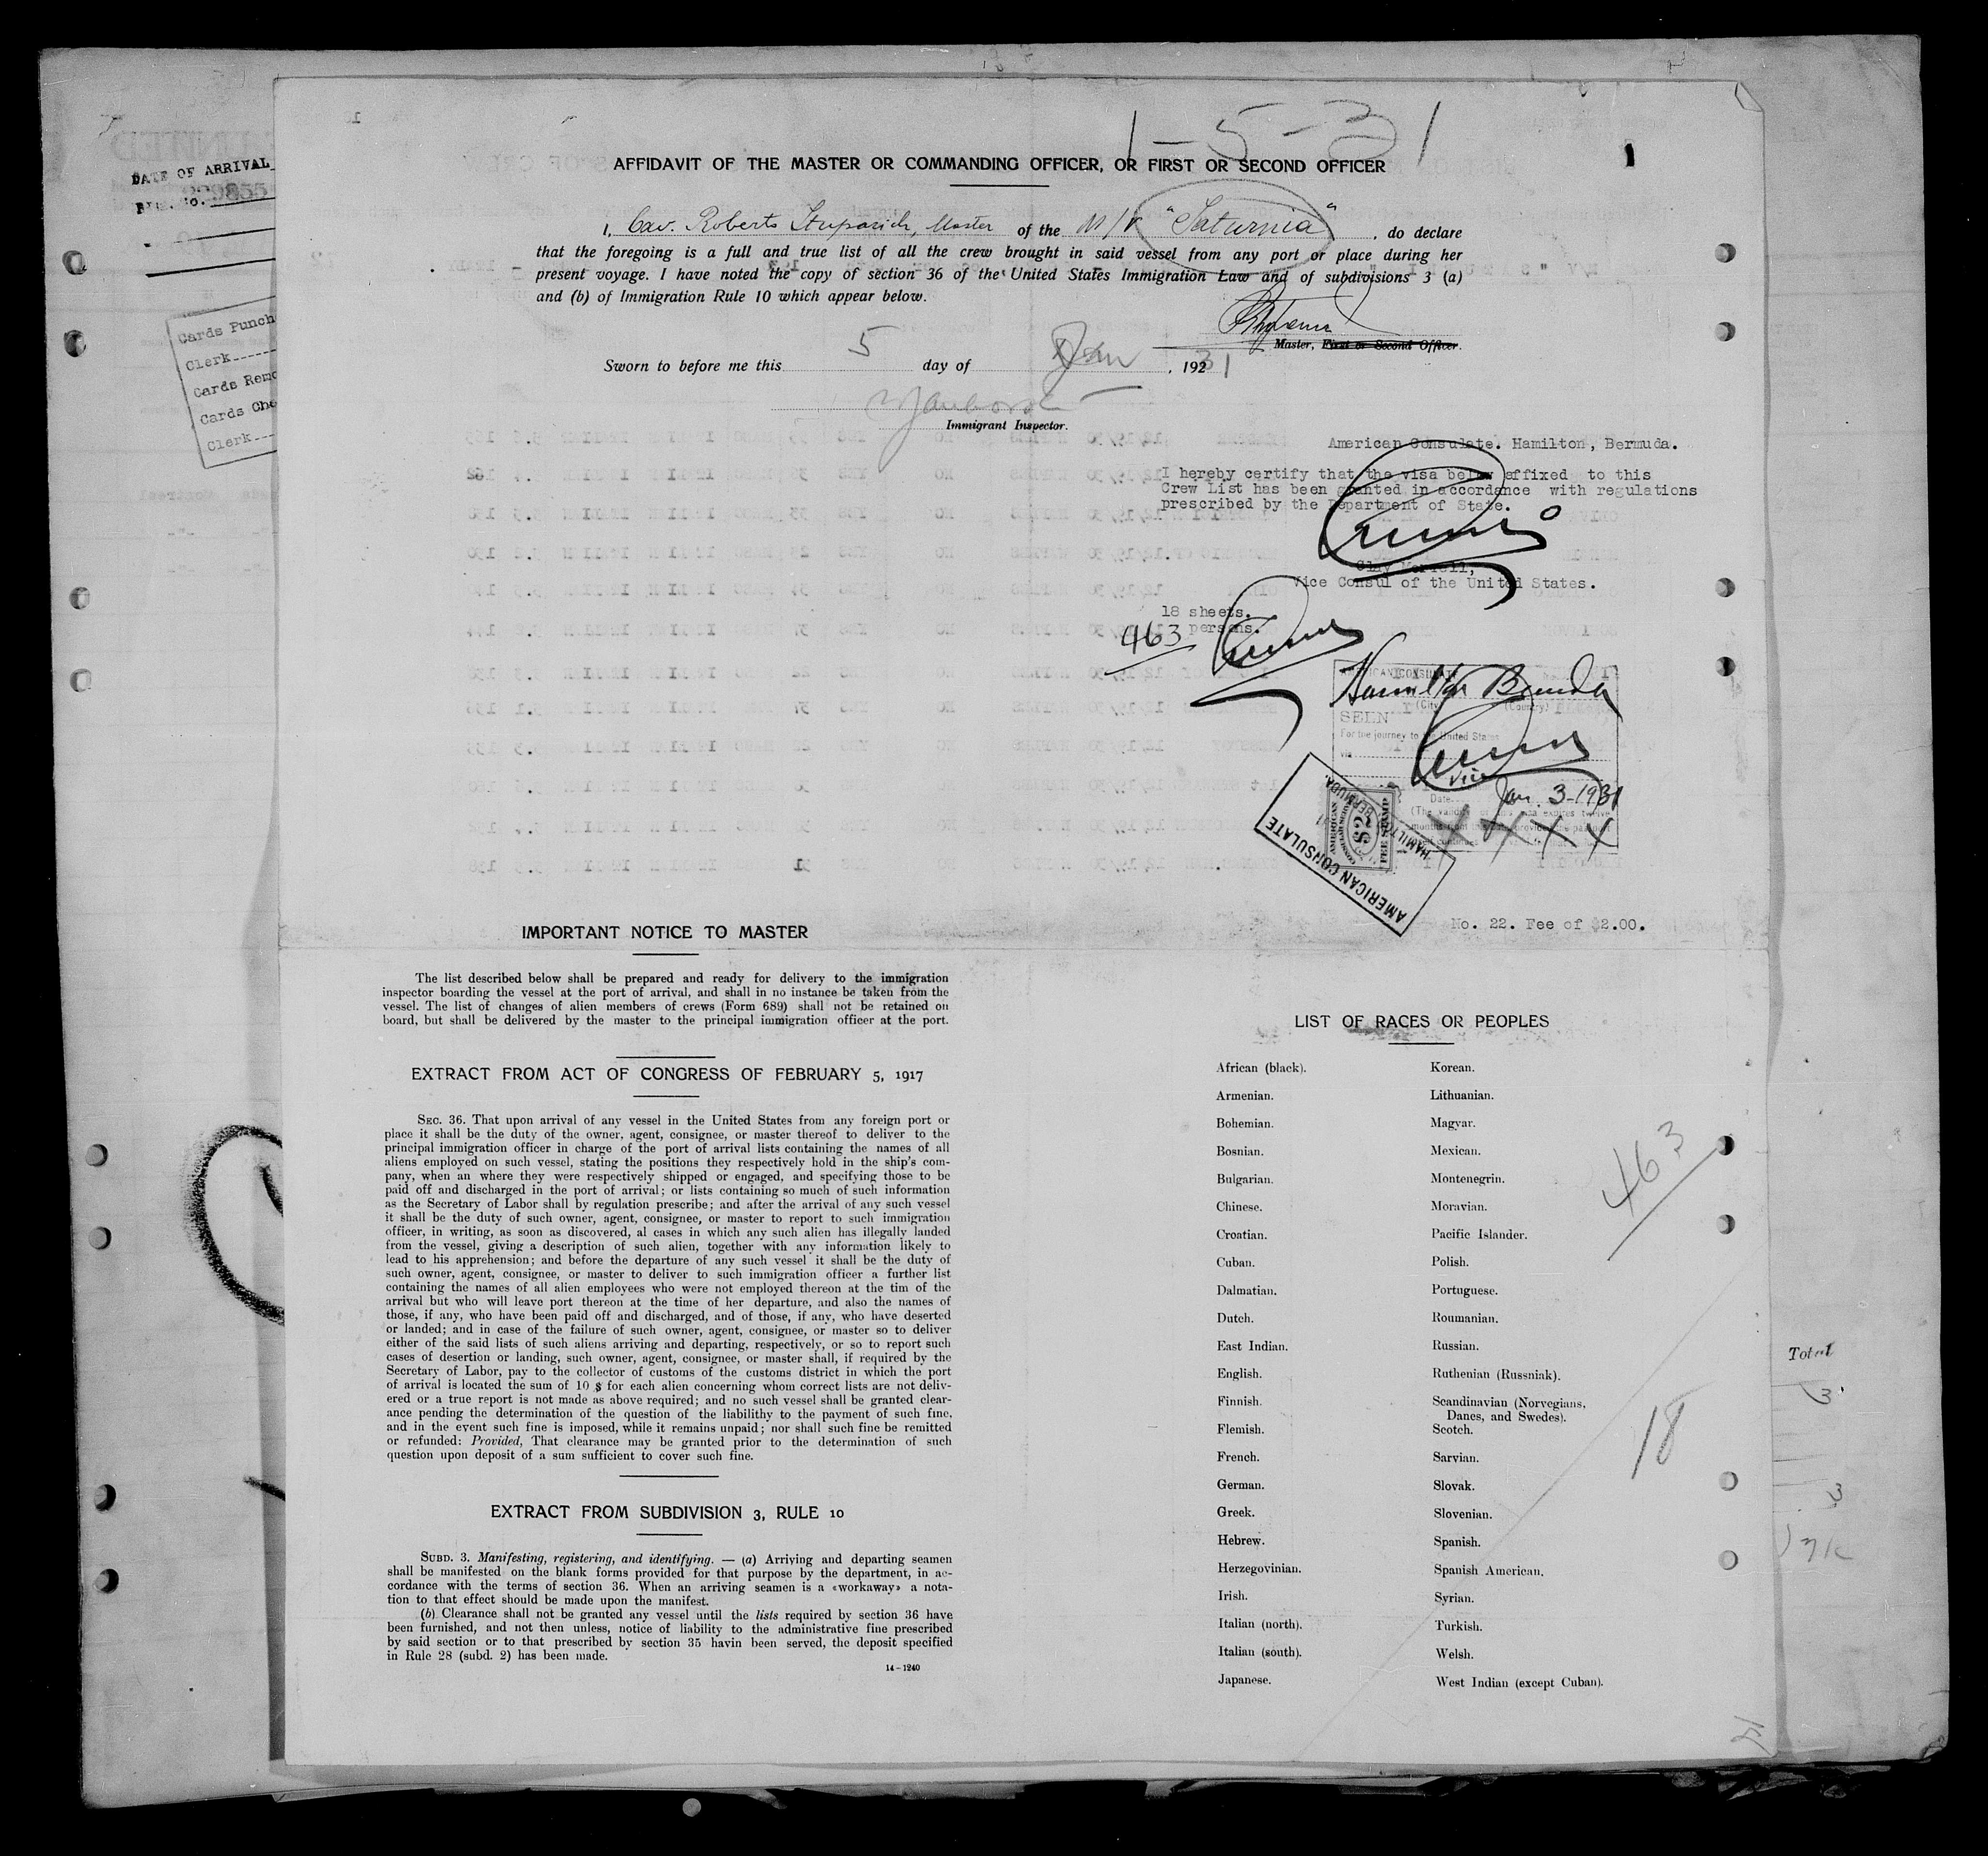 1-5-31
DATE OF ARRIVAL
AFFIDAVIT OF THE MASTER OR COMMANDING OFFICER, OR FIRST OR SECOND OFFICER
1
I, Cav. Roberto Stuparich, Master of the M/V "Saturnia", do declare
that the foregoing is a full and true list of all the crew brought in said vessel from any port or place during her
present voyage. I have noted the copy of section 36 of the United States Immigration Law and of subdivisions 3 (a)
and (b) of Immigration Rule 10 which appear below.
Master, First or Second Officer.
Sworn to before me this 5 day of Jan, 19231
Immigrant Inspector.
Cards Punch
Clerk
Cards Remo
Cards Che
Clerk
American Consulate. Hamilton, Bermuda.
I hereby certify that the visa below affixed to this
Crew List has been granted in accordance with regulations
prescribed by the Department of State.
Clay Merrell,
Vice Consul of the United States.
18 sheets.
463 persons.
AMERICAN CONSULATE
Hamilton Bermuda
(City) (Country)
SEEN
For the journey to the United States
via
Vice
Date Jan. 3-1931
AMERICAN CONSULATE
HAMILTON BERMUDA.
$2
FEE STAMP
No. 22. Fee of $2.00.
IMPORTANT NOTICE TO MASTER
The list described below shall be prepared and ready for delivery to the immigration
inspector boarding the vessel at the port of arrival, and shall in no instance be taken from the
vessel. The list of changes of alien members of crews (Form 689) shall not be retained on
board, but shall be delivered by the master to the principal immigration officer at the port.
EXTRACT FROM ACT OF CONGRESS OF FEBRUARY 5, 1917
SEC. 36. That upon arrival of any vessel in the United States from any foreign port or
place it shall be the duty of the owner, agent, consignee, or master thereof to deliver to the
principal immigration officer in charge of the port of arrival lists containing the names of all
aliens employed on such vessel, stating the positions they respectively hold in the ship's com-
pany, when an where they were respectively shipped or engaged, and specifying those to be
paid off and discharged in the port of arrival; or lists containing so much of such information
as the Secretary of Labor shall by regulation prescribe; and after the arrival of any such vessel
it shall be the duty of such owner, agent, consignee, or master to report to such immigration
officer, in writing, as soon as discovered, al cases in which any such alien has illegally landed
from the vessel, giving a description of such alien, together with any information likely to
lead to his apprehension; and before the departure of any such vessel it shall be the duty of
such owner, agent, consignee, or master to deliver to such immigration officer a further list
containing the names of all alien employees who were not employed thereon at the tim of the
arrival but who will leave port thereon at the time of her departure, and also the names of
those, if any, who have been paid off and discharged, and of those, if any, who have deserted
or landed; and in case of the failure of such owner, agent, consignee, or master so to deliver
either of the said lists of such aliens arriving and departing, respectively, or so to report such
cases of desertion or landing, such owner, agent, consignee, or master shall, if required by the
Secretary of Labor, pay to the collector of customs of the customs district in which the port
of arrival is located the sum of 10 $ for each alien concerning whom correct lists are not deliv-
ered or a true report is not made as above required; and no such vessel shall be granted clear-
ance pending the determination of the question of the liabilithy to the payment of such fine,
and in the event such fine is imposed, while it remains unpaid; nor shall such fine be remitted
or refunded: Provided, That clearance may be granted prior to the determination of such
question upon deposit of a sum sufficient to cover such fine.
EXTRACT FROM SUBDIVISION 3, RULE 10
SUBD. 3. Manifesting, registering, and identifying. — (a) Arriving and departing seamen
shall be manifested on the blank forms provided for that purpose by the department, in ac-
cordance with the terms of section 36. When an arriving seamen is a «workaway» a nota-
tion to that effect should be made upon the manifest.
(b) Clearance shall not be granted any vessel until the lists required by section 36 have
been furnished, and not then unless, notice of liability to the administrative fine prescribed
by said section or to that prescribed by section 35 havin been served, the deposit specified
in Rule 28 (subd. 2) has been made.
14-1240
LIST OF RACES OR PEOPLES
African (black). Korean.
Armenian. Lithuanian.
Bohemian. Magyar.
Bosnian. Mexican.
Bulgarian. Montenegrin.
Chinese. Moravian.
Croatian. Pacific Islander.
Cuban. Polish.
Dalmatian. Portuguese.
Dutch. Roumanian.
East Indian. Russian.
English. Ruthenian (Russniak).
Finnish. Scandinavian (Norvegians,
Danes, and Swedes).
Flemish. Scotch.
French. Sarvian.
German. Slovak.
Greek. Slovenian.
Hebrew. Spanish.
Herzegovinian. Spanish American.
Irish. Syrian.
Italian (north). Turkish.
Italian (south). Welsh.
Japanese. West Indian (except Cuban).
463
18
Total
3
3